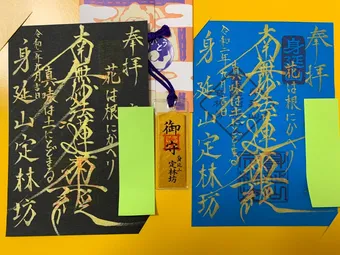 奉拝
花は根にかへり
南無妙法蓮華経
真味は土にとどまる
令和二年
身延山定林坊
御守
身延山
定林坊
奉拝
身延
花は根にか
南無妙法蓮華経
真味は土にとどまる
令和二年
身延山定林坊